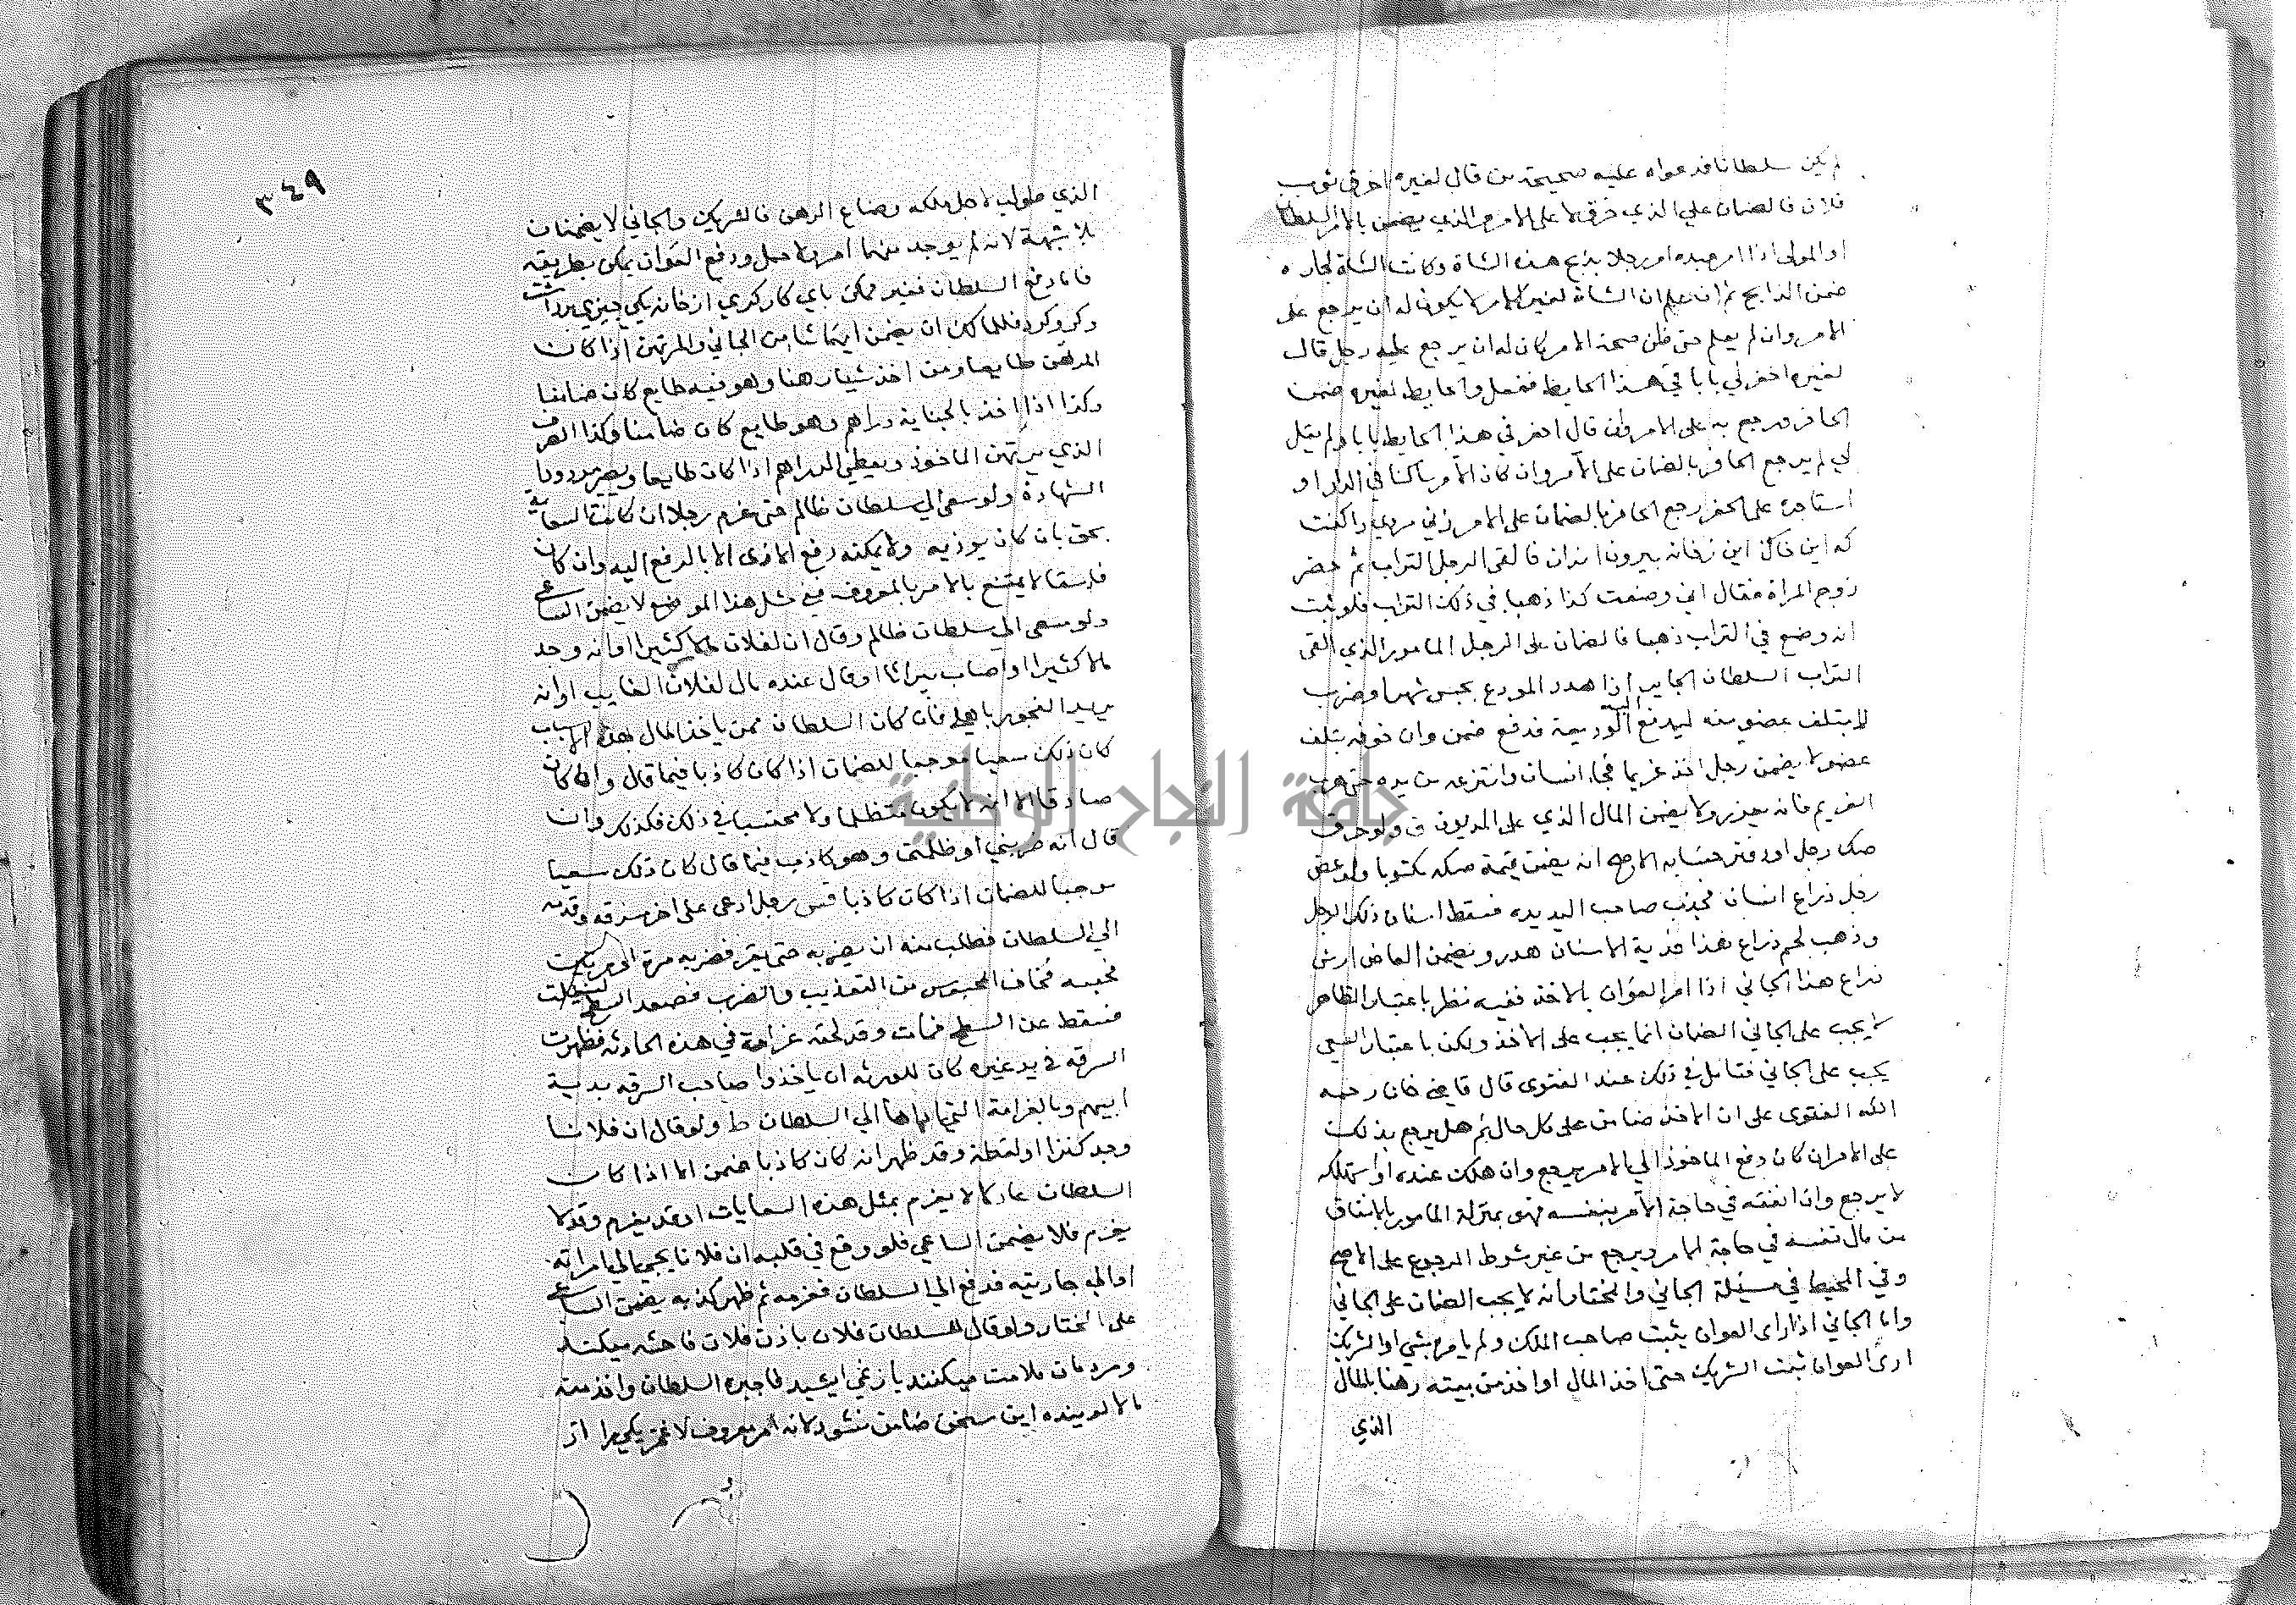 لم يكن سلطانا فدعواه عليه صحيحة من قال لغيره اخرق ثوب
فلان فالضمان علي الذي خرق لا على الامر الذي يضمن بالامر السلطان
او المولى اذا امر عبده امر رجلا بذبح هذه الشاة وكانت الشاة لجاره
ضمن الذابح ثم ان علم ان الشاة لغير الامر لا يكون له ان يرجع على
الامر وان لم يعلم حتى ظن صحة الامر كان له ان يرجع عليه رجل قال
لغيره احفر لي بابا في هذا الحايط ففعل والحايط لغيره ضمن
الحافر ورجع به على الامر ولو قال احفر في هذا الحايط بابا ولم يقل
لي لم يرجع الحافر بالضمان على الآمر وان كان الآمر ساكنا في الدار او
استاجره على الحفر رجع الحافر بالضمان على الامر زني مردي را كفت
كه اين خاك اين خانه بيرون انداز فالقى الرجل التراب ثم حضر
زوج المراة فقال اني وضعت كذا ذهبا في ذلك التراب فلو ثبت
انه وضع في التراب ذهبا فالضمان على الرجل المامور الذي القى
التراب السلطان الجاير اذا هدد المودع بحبس شهر او ضرب
لا يتلف عضو منه ليدفع اليه الوديعة فدفع ضمن وان خوفه بتلف
عضو لا يضمن رجل اخذ غريما فجاء انسان وانتزعه من يده حتى هرب
الغريم فانه يعزر ولا يضمن المال الذي على المديون ولو حرق
صك رجل او دفتر حسابه الاصح انه يضمن قيمة صكه مكتوبا ولو عض
رجل ذراع انسان فجذب صاحب اليد يده فسقط اسنان ذلك الرجل
وذهب لحم ذراع هذا فدية الاسنان هدر ويضمن العاض ارش
ذراع هذا الجاني اذا امر العوان بالاخذ ففيه نظر باعتبار الظاهر
لا يجب على الجاني الضمان انما يجب على الاخذ ولكن باعتبار السعي
يجب على الجاني فتامل في ذلك عند الفتوى قال قاضي خان رحمه
الله الفتوى على ان الاخذ ضامن على كل حال ثم هل يرجع بذلك
على الامر ان كان دفع الماخوذ الي الامر يرجع وان هلك عنده او استهلكه
لا يرجع وان انفقه في حاجة الآمر بنفسه فهو بمنزلة المامور بالانفاق
من مال نفسه في حاجة الامر ويرجع من غير شرط الرجوع على الاصح
وفي المحيط في مسئلة الجاني والمختار انه لا يجب الضمان على الجاني
واما الجاني اذا راى العوان بيت صاحب الملك ولم يامر بشي او الشريك
ارى العوان بيت الشريك حتى اخذ المال او اخذ من بيته رهنا بالمال
الذي
٣٤٩
الذي طولب لاجل ملكه وضاع الرهن فالشريك والجاني لا يضمنان
بلا شبهة لانه لم يوجد منهما امر ولا حمل ودفع العوان يمكن بطريقه
فاما دفع السلطان فغير ممكن باي كار كري از خانه يكي چيزي برداشت
وكرو كرد فللمالك ان يضمن ايهما شا من الجاني والمرتهن اذا كان
المرتهن طايعا ومن اخذ شيئا رهنا وهو فيه طايع كان ضامنا
وكذا اذا اخذ بالجباية دراهم وهو طايع كان ضامنا وكذا الصراف
الذي يرتهن الماخوذ ويعطي الدراهم اذا كان طايعا ويصير مردود
الشهادة ولو سعى الي سلطان ظالم حتى غرم رجلا ان كانت السعاية
بحق بان كان يوذيه ولا يمكنه دفع الاذى الا بالرفع اليه وان كان
فاسقا لا يمتنع بالامر بالمعروف ففي مثل هذا الموضع لا يضمن الساعي
ولو سعى الي سلطان ظالم وقال ان لفلان مالا كثيرا او انه وجد
مالا كثيرا او اصاب ميراثا او قال عنده مال لفلان الغايب او انه
يريد الفجور باهلي فان كان السلطان ممن ياخذ المال بهذه الاسباب
كان ذلك سعيا موجبا للضمان اذا كان كاذبا فيما قال وان كان
صادقا الا انه لا يكون متظلما ولا محتسبا في ذلك فكذلك وان
قال انه ضربني او ظلمني وهو كاذب فيما قال كان ذلك سعيا
موجبا للضمان اذا كان كاذبا رجل ادعى على اخر سرقه وقدمه
الي السلطان فطلب منه ان يضربه حتى يقر فضربه مرة او مرتين
فحبسه فخاف المحبوس من التعذيب والضرب فصعد السطح لينفلت
فسقط عن السطح فمات وقد لحقه غرامة في هذه الحادثه فظهرت
السرقه في يد غيره كان للورثه ان ياخذوا صاحب السرقه بدية
ابيهم وبالغرامة التي اداها الي السلطان ط ولو قال ان فلانا
وجد كنزا او لقطة وقد ظهر انه كان كاذبا ضمن الا اذا كان
السلطان عادلا لا يغرم بمثل هذه السعايات او قد يغرم وقد لا
يغرم فلا يضمن الساعي فلو وقع في قلبه ان فلانا يجي الي امراته
او الي جاريته فدفع الي السلطان فغرمه ثم ظهر كذبه يضمن الساعي
على المختار ولو قال للسلطان فلان با زن فلان فاحشه ميكند
ومردمان ملامت ميكنند باز نمي ايستد فاجبره السلطان واخذ منه
مالا گوينده اين سخن ضامن نشود لانه امر بمعروف لا غمز يكي را از